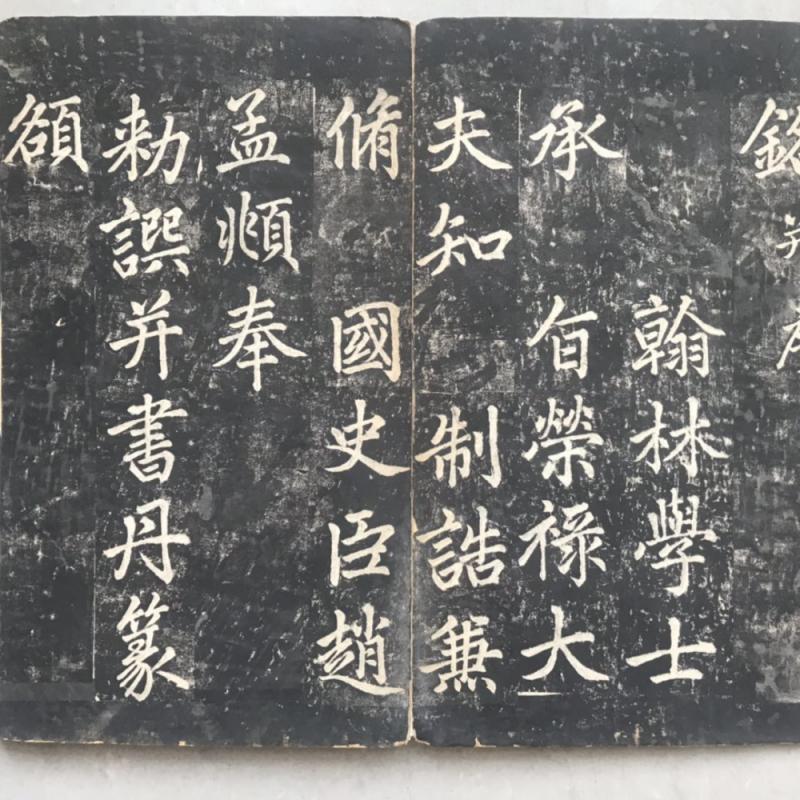 銘并序
翰林學士
承 旨榮禄大
夫知 制誥兼
脩 國史臣趙
孟頫奉
勑譔并書丹篆
額